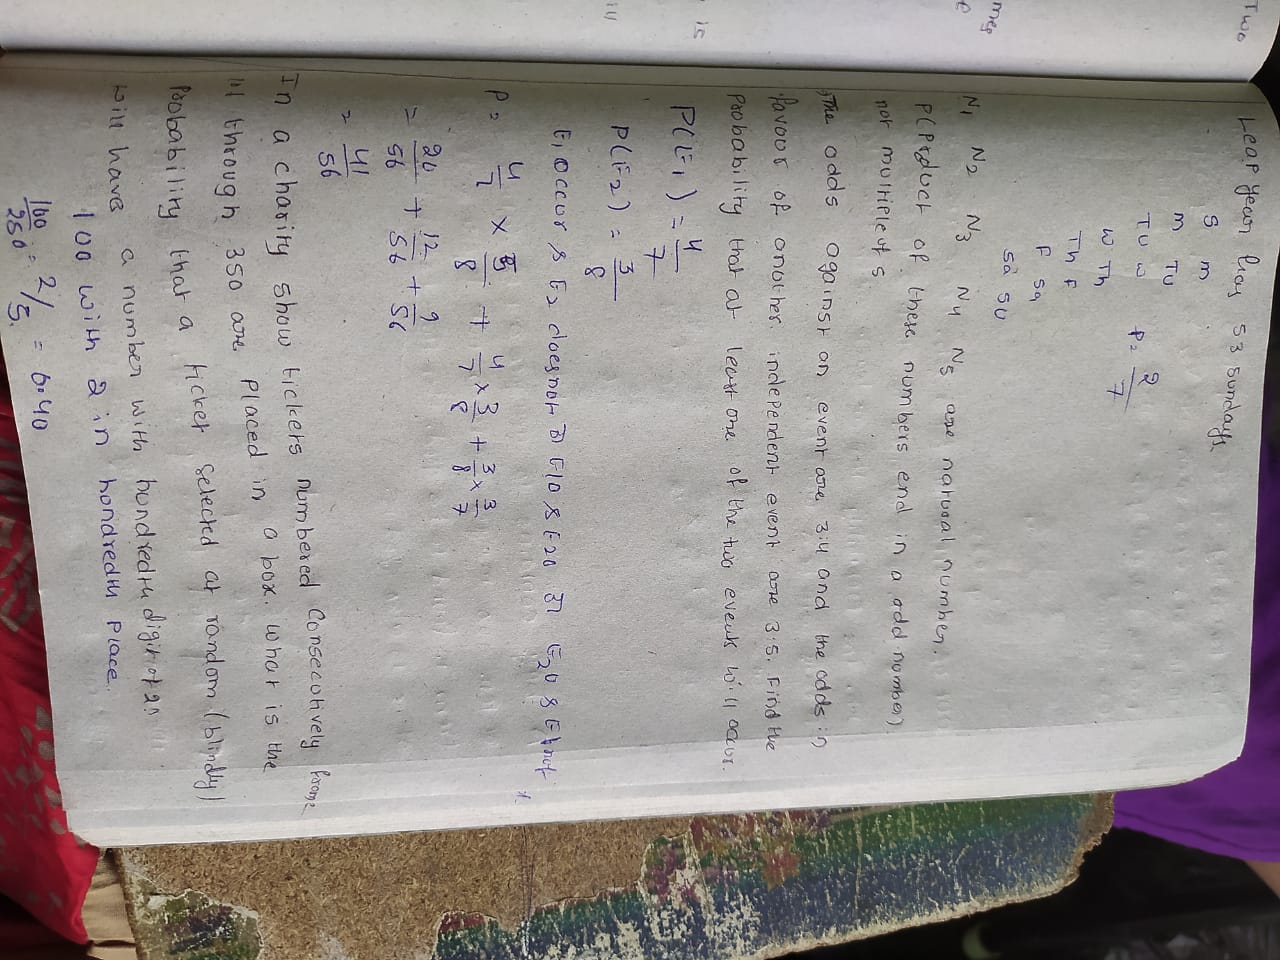 Leap year has 53 Sundays
S m
m Tu
Tu w P= 2/7
w Th
Th F
F Sa
Sa Su
N1 N2 N3 N4 N5 are natural number.
P(Product of these numbers end in a odd number)
not multiple of 5
The odds against an event are 3:4 and the odds in
favour of another independent event are 3:5. Find the
Probability that at least one of the two events will occur.
P(E1) = 4/7
P(E2) = 3/8
E1 occur & E2 does not या E1O & E2O या E2O & E1 not
P= 4/7 × 5/8 + 4/7 × 3/8 + 3/8 × 3/7
= 20/56 + 12/56 + 9/56
= 41/56
In a charity show tickets numbered consecutively frome
101 through 350 are placed in a box. what is the
Probability that a ticket selected at random (blindly)
will have a number with hundredth digit of 2?
100 with 2 in hundredth place.
100/250 = 2/5. = 0.40
Two
mes
is
ill